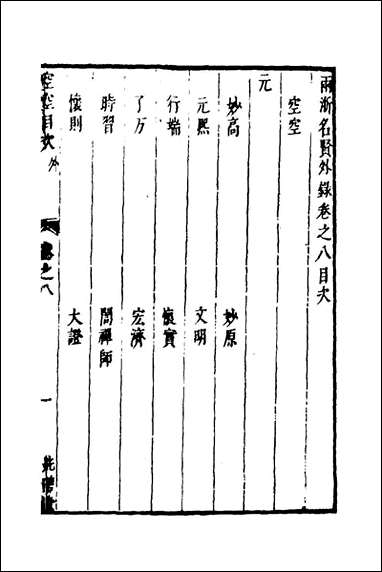 兩浙名賢外錄卷之八目次
空空
元
妙高　妙原
元熙　文明
行端　懷實
了万　宏濟
時習　誾禪師
懷則　大證
空空目次　外　卷之八　一